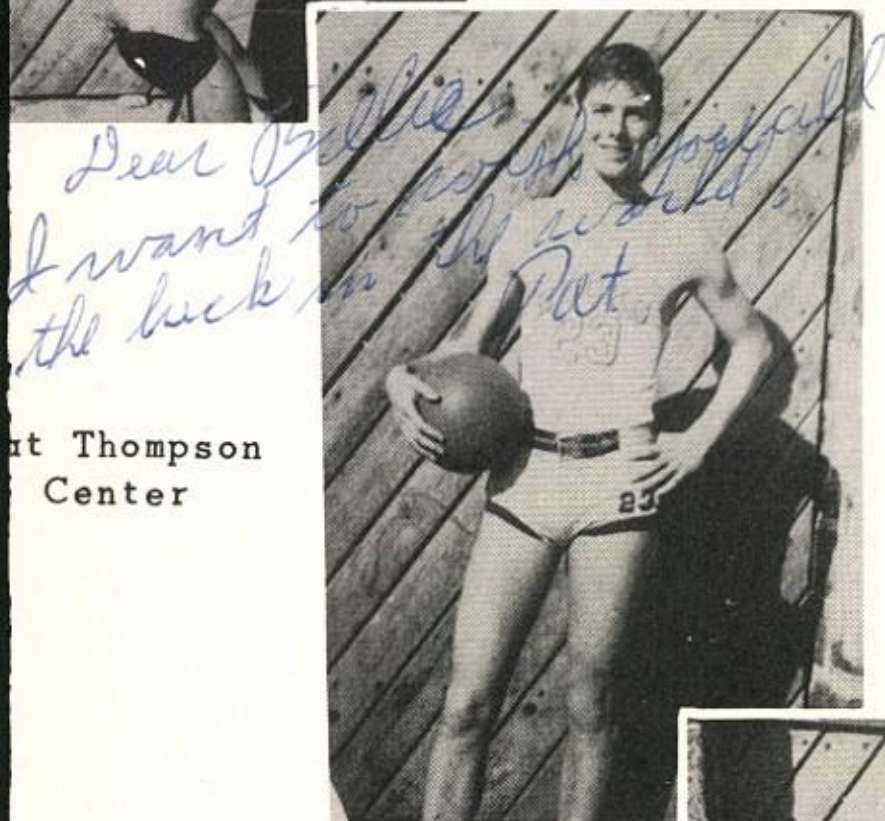 Dear Billie,
I want to wish you all
the luck in the world,
Pat
23
at Thompson
Center
23